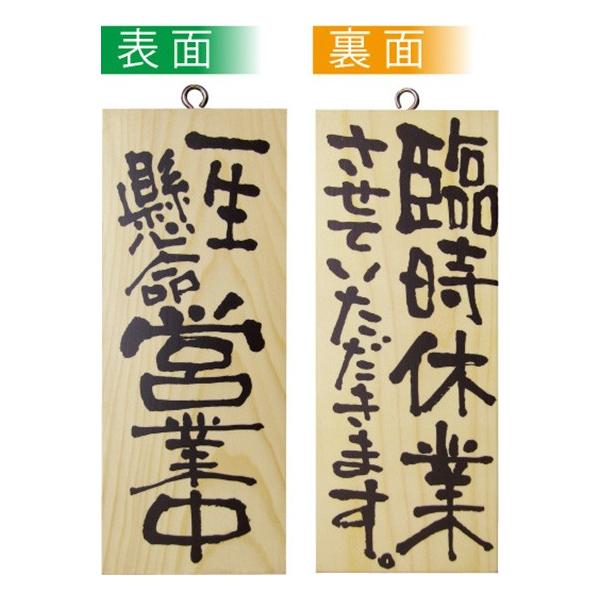 表面
一生
懸命
営業中
裏面
臨時休業
させていただきます。